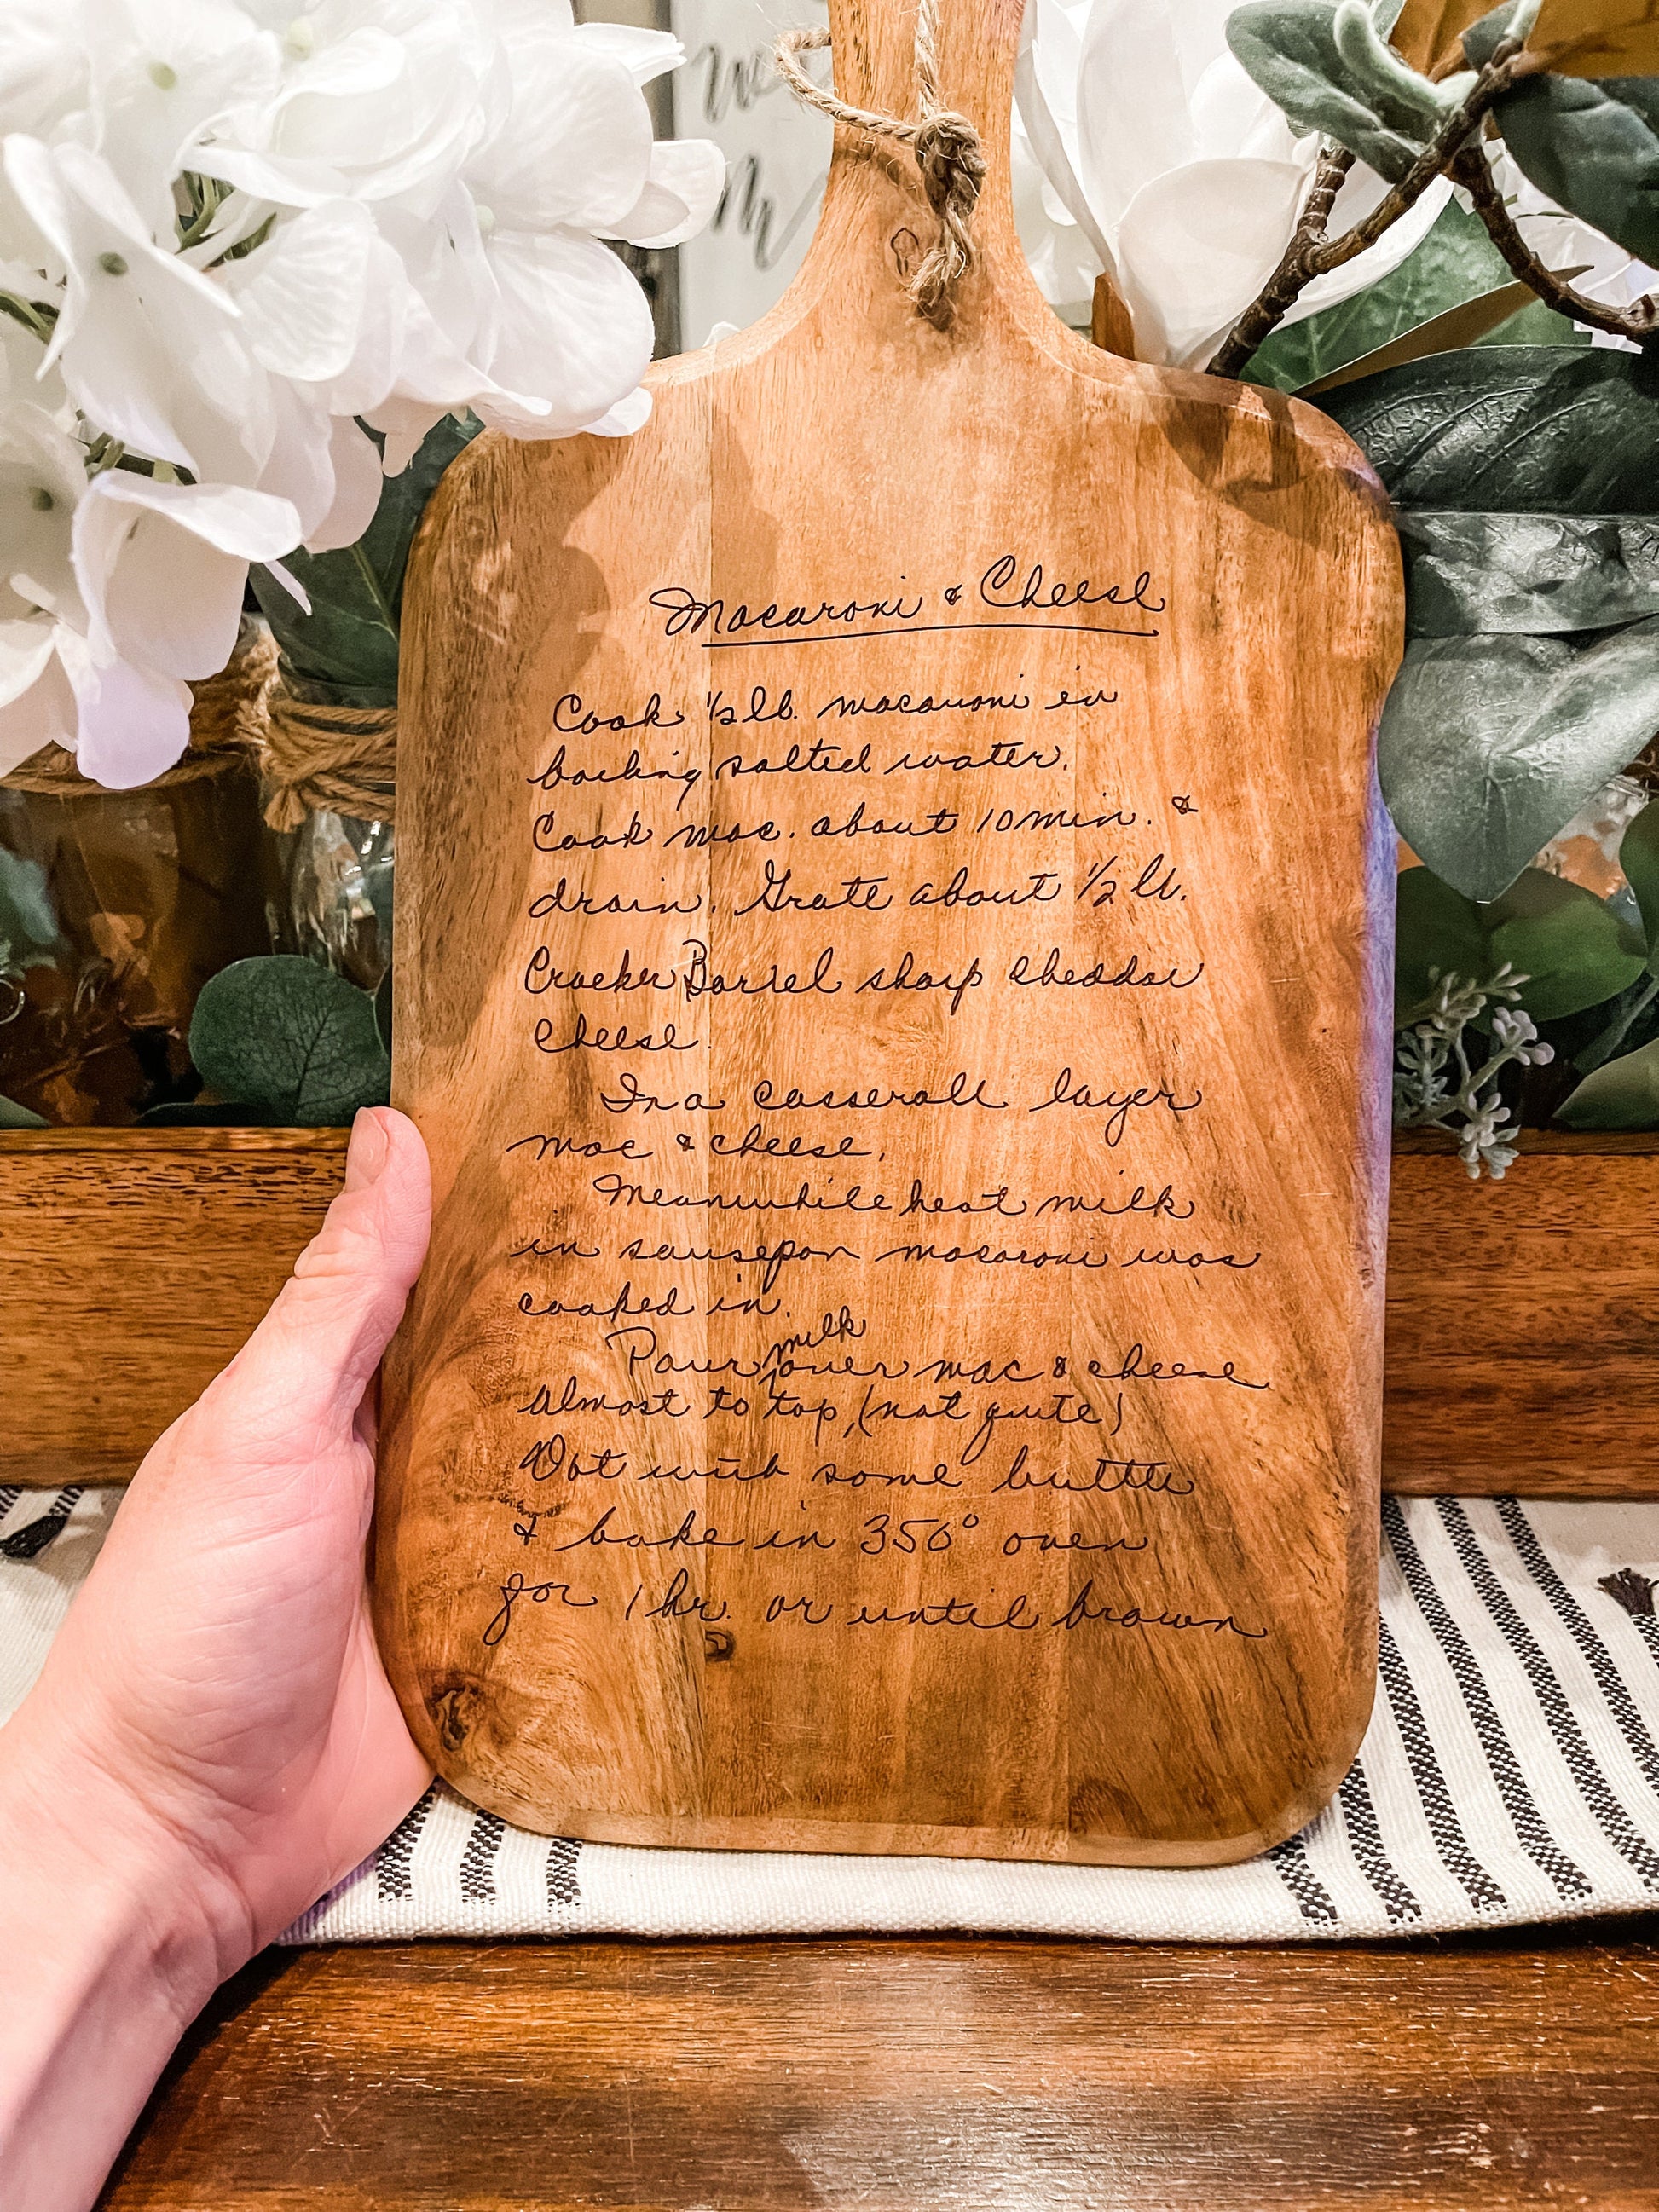 Macaroni & Cheese
Cook 1/2 lb. macaroni in
boiling salted water.
Cook mac. about 10 min. &
drain. Grate about 1/2 lb.
Cracker Barrel sharp cheddar
cheese.
In a casserole layer
mac & cheese.
Meanwhile heat milk
in sausepan macaroni was
cooked in.
milk
Pour over mac & cheese
almost to top, (not quite)
Dot with some butter
& bake in 350° oven
for 1 hr. or until brown